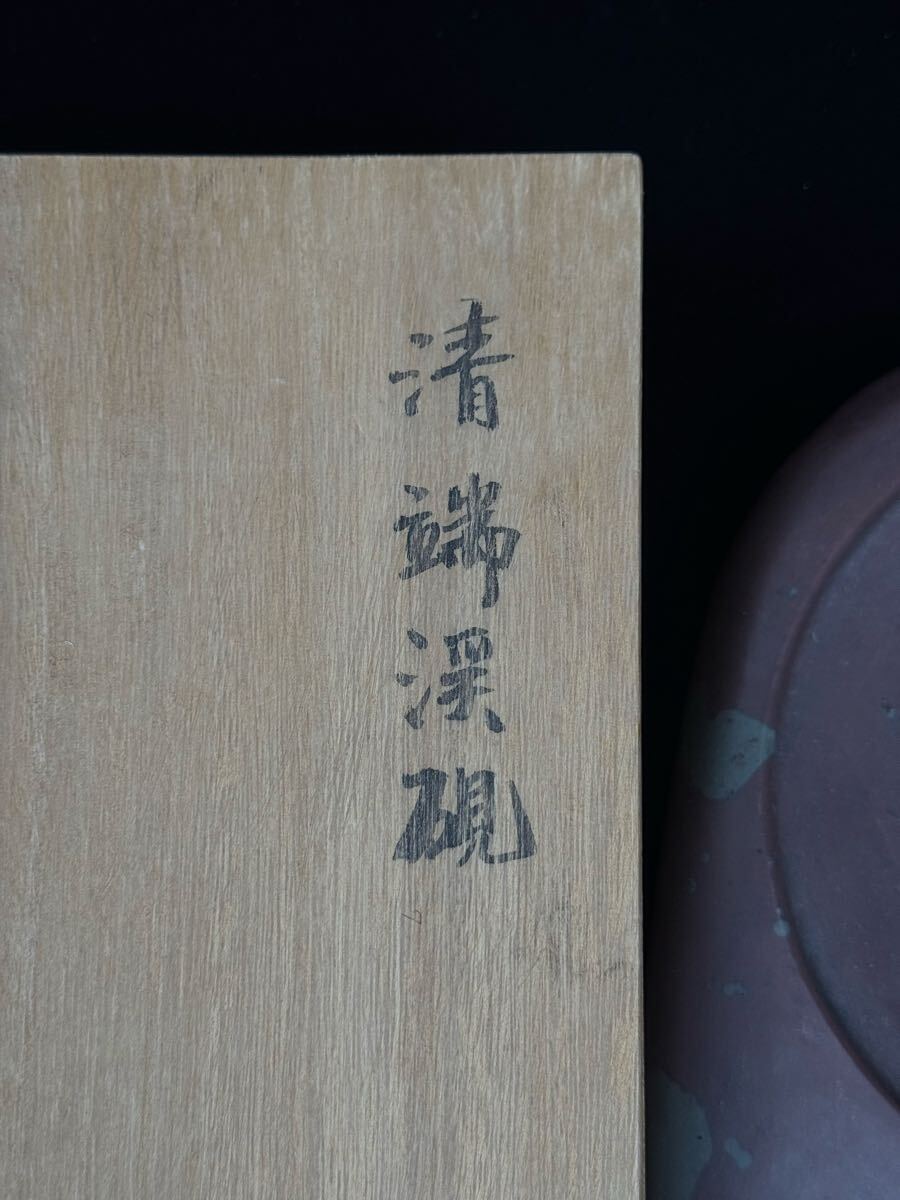 清端渓硯